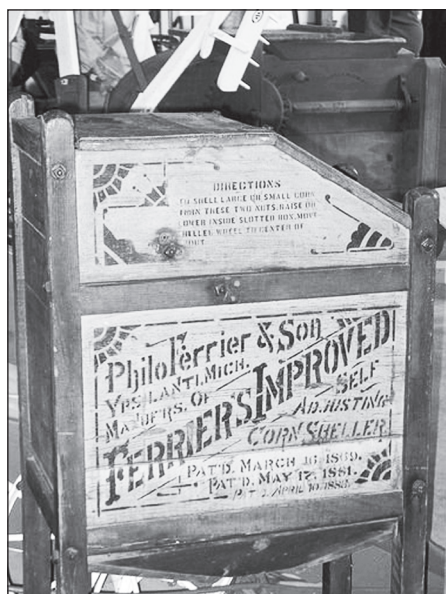 DIRECTIONS
TO SHELL LARGE OR SMALL CORN
THESE TWO NUTS. RAISE OR
LOWER INSIDE SLOTTED BOX. MOVE
SHELLER WHEEL TO CENTER OF
Philo Ferrier & Son
YPSILANTI, MICH.
MANFERS. OF
FERRIER'S IMPROVED
SELF
ADJUSTING
CORN SHELLER
PAT'D. MARCH 16. 1869.
PAT'D. MAY 17, 1881.
PAT'D. APRIL 10.